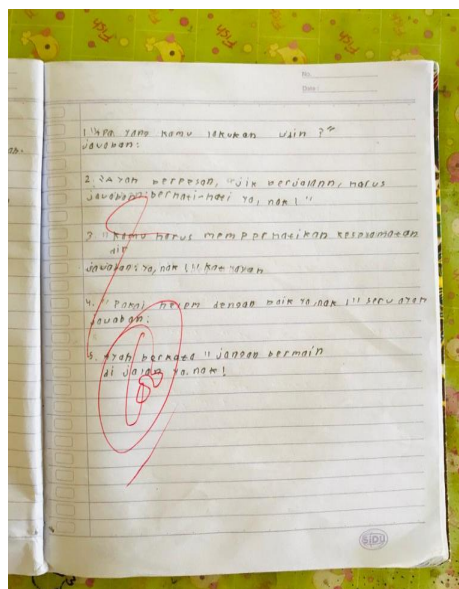 No.
Date:
1. "Apa yang kamu lakukan Udin ?"
Jawaban:
2. Ayah berpesan, "jik berjalann, harus
Jawaban: berhati-hati ya, nak ! "
3. "Kamu harus mempperhatikan keselamatan
dir
Jawaban: ya, nak ! " kat ayah
4. "Pakai helem dengan baik ya, nak ! " seru ayah
Jawaban:
5. Ayah berkata " jangan bermain
di jalan ya, nak !
SIDU